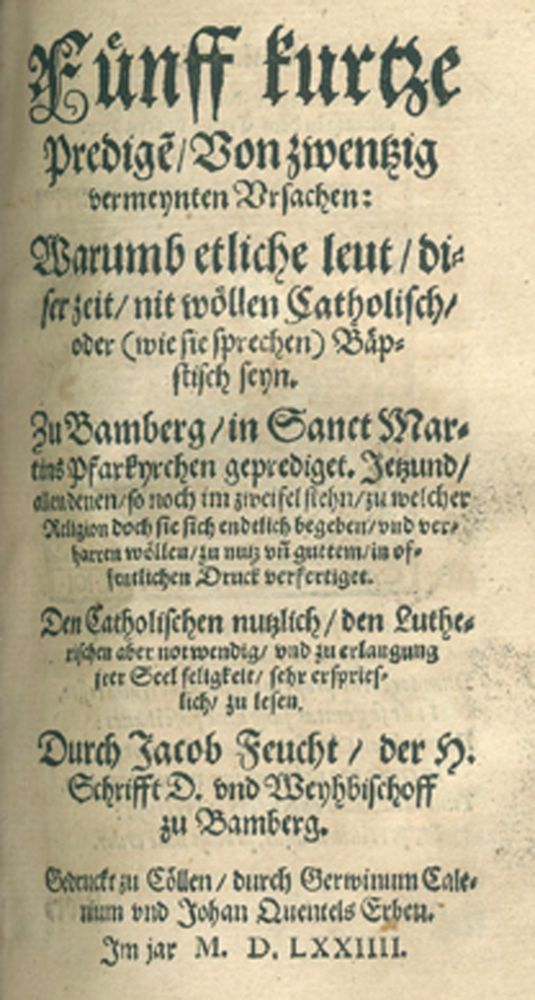 Fünff kurtze
Predigẽ/ Von zwentzig
vermeynten Vrsachen:
Warumb etliche leut/ di-
ser zeit/ nit wöllen Catholisch/
oder (wie sie sprechen) Bäp-
stisch seyn.
Zu Bamberg/ in Sanct Mar-
tins Pfarkyrchen geprediget. Jetzund/
allen denen/ so noch im zweifel stehn/ zu welcher
Religion doch sie sich endtlich begeben/ vnd ver-
harren wöllen/ zu nutz vñ guttem/ in of-
fentlichen Druck verfertiget.
Den Catholischen nutzlich/ den Luthe-
rischen aber notwendig/ vnd zu erlangung
jrer Seel seligkeit/ sehr erspries-
lich/ zu lesen.
Durch Jacob Feucht/ der H.
Schrifft D. vnd Weyhbischoff
zu Bamberg.
Gedruckt zu Cöllen/ durch Gerwinum Cale-
nium vnd Johan Quentels Erben.
Im jar M. D. LXXIIII.